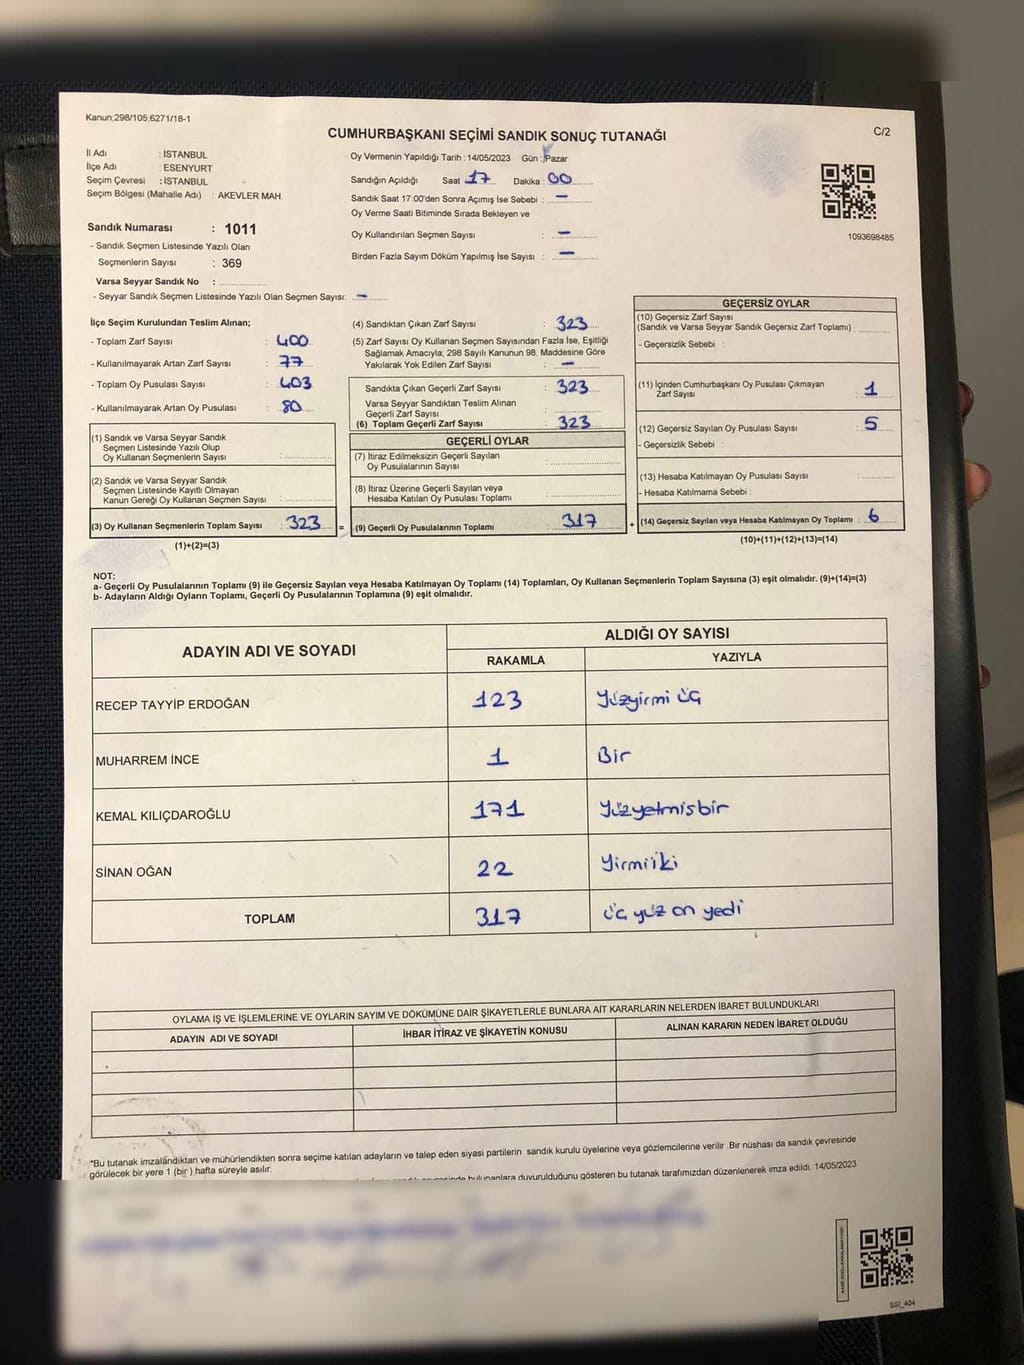 Kanun;298/105;6271/18-1
CUMHURBAŞKANI SEÇİMİ SANDIK SONUÇ TUTANAĞI
C/2
İl Adı : İSTANBUL
İlçe Adı : ESENYURT
Seçim Çevresi : İSTANBUL
Seçim Bölgesi (Mahalle Adı) : AKEVLER MAH.
Sandık Numarası : 1011
- Sandık Seçmen Listesinde Yazılı Olan
Seçmenlerin Sayısı : 369
Varsa Seyyar Sandık No :
- Seyyar Sandık Seçmen Listesinde Yazılı Olan Seçmen Sayısı: -
Oy Vermenin Yapıldığı Tarih : 14/05/2023 Gün : Pazar
Sandığın Açıldığı Saat 17 Dakika : 00
Sandık Saat 17:00'den Sonra Açımış İse Sebebi : -
Oy Verme Saati Bitiminde Sırada Bekleyen ve
Oy Kullandırılan Seçmen Sayısı : -
Birden Fazla Sayım Döküm Yapılmış İse Sayısı : -
1093698485
İlçe Seçim Kurulundan Teslim Alınan;
- Toplam Zarf Sayısı : 400
- Kullanılmayarak Artan Zarf Sayısı : 77
- Toplam Oy Pusulası Sayısı : 403
- Kullanılmayarak Artan Oy Pusulası : 80
(1) Sandık ve Varsa Seyyar Sandık
Seçmen Listesinde Yazılı Olup
Oy Kullanan Seçmenlerin Sayısı :
(2) Sandık ve Varsa Seyyar Sandık
Seçmen Listesinde Kayıtlı Olmayan
Kanun Gereği Oy Kullanan Seçmen Sayısı :
(3) Oy Kullanan Seçmenlerin Toplam Sayısı : 323 =
(1)+(2)=(3)
(4) Sandıktan Çıkan Zarf Sayısı : 323
(5) Zarf Sayısı Oy Kullanan Seçmen Sayısından Fazla İse, Eşitliği
Sağlamak Amacıyla; 298 Sayılı Kanunun 98. Maddesine Göre
Yakılarak Yok Edilen Zarf Sayısı : -
Sandıkta Çıkan Geçerli Zarf Sayısı : 323
Varsa Seyyar Sandıktan Teslim Alınan
Geçerli Zarf Sayısı :
(6) Toplam Geçerli Zarf Sayısı : 323
GEÇERLİ OYLAR
(7) İtiraz Edilmeksizin Geçerli Sayılan
Oy Pusulalarının Sayısı :
(8) İtiraz Üzerine Geçerli Sayılan veya
Hesaba Katılan Oy Pusulası Toplamı :
(9) Geçerli Oy Pusulalarının Toplamı : 317 +
GEÇERSİZ OYLAR
(10) Geçersiz Zarf Sayısı
(Sandık ve Varsa Seyyar Sandık Geçersiz Zarf Toplamı) :
- Geçersizlik Sebebi :
(11) İçinden Cumhurbaşkanı Oy Pusulası Çıkmayan
Zarf Sayısı : 1
(12) Geçersiz Sayılan Oy Pusulası Sayısı : 5
- Geçersizlik Sebebi :
(13) Hesaba Katılmayan Oy Pusulası Sayısı :
- Hesaba Katılmama Sebebi :
(14) Geçersiz Sayılan veya Hesaba Katılmayan Oy Toplamı : 6
(10)+(11)+(12)+(13)=(14)
NOT:
a- Geçerli Oy Pusulalarının Toplamı (9) ile Geçersiz Sayılan veya Hesaba Katılmayan Oy Toplamı (14) Toplamları, Oy Kullanan Seçmenlerin Toplam Sayısına (3) eşit olmalıdır. (9)+(14)=(3)
b- Adayların Aldığı Oyların Toplamı, Geçerli Oy Pusulalarının Toplamına (9) eşit olmalıdır.
ADAYIN ADI VE SOYADI
ALDIĞI OY SAYISI
RAKAMLA YAZIYLA
RECEP TAYYİP ERDOĞAN 123 Yüzyirmi üç
MUHARREM İNCE 1 Bir
KEMAL KILIÇDAROĞLU 171 Yüzyetmisbir
SİNAN OĞAN 22 Yirmiiki
TOPLAM 317 üç yüz on yedi
OYLAMA İŞ VE İŞLEMLERİNE VE OYLARIN SAYIM VE DÖKÜMÜNE DAİR ŞİKAYETLERLE BUNLARA AİT KARARLARIN NELERDEN İBARET BULUNDUKLARI
ADAYIN ADI VE SOYADI İHBAR İTİRAZ VE ŞİKAYETİN KONUSU ALINAN KARARIN NEDEN İBARET OLDUĞU
*Bu tutanak imzalandıktan ve mühürlendikten sonra seçime katılan adayların ve talep eden siyasi partilerin sandık kurulu üyelerine veya gözlemcilerine verilir .Bir nüshası da sandık çevresinde
görülecek bir yere 1 (bir ) hafta süreyle asılır.
bulunanlara duyurulduğunu gösteren bu tutanak tarafımızdan düzenlenerek imza edildi. 14/05/2023
SSI_404